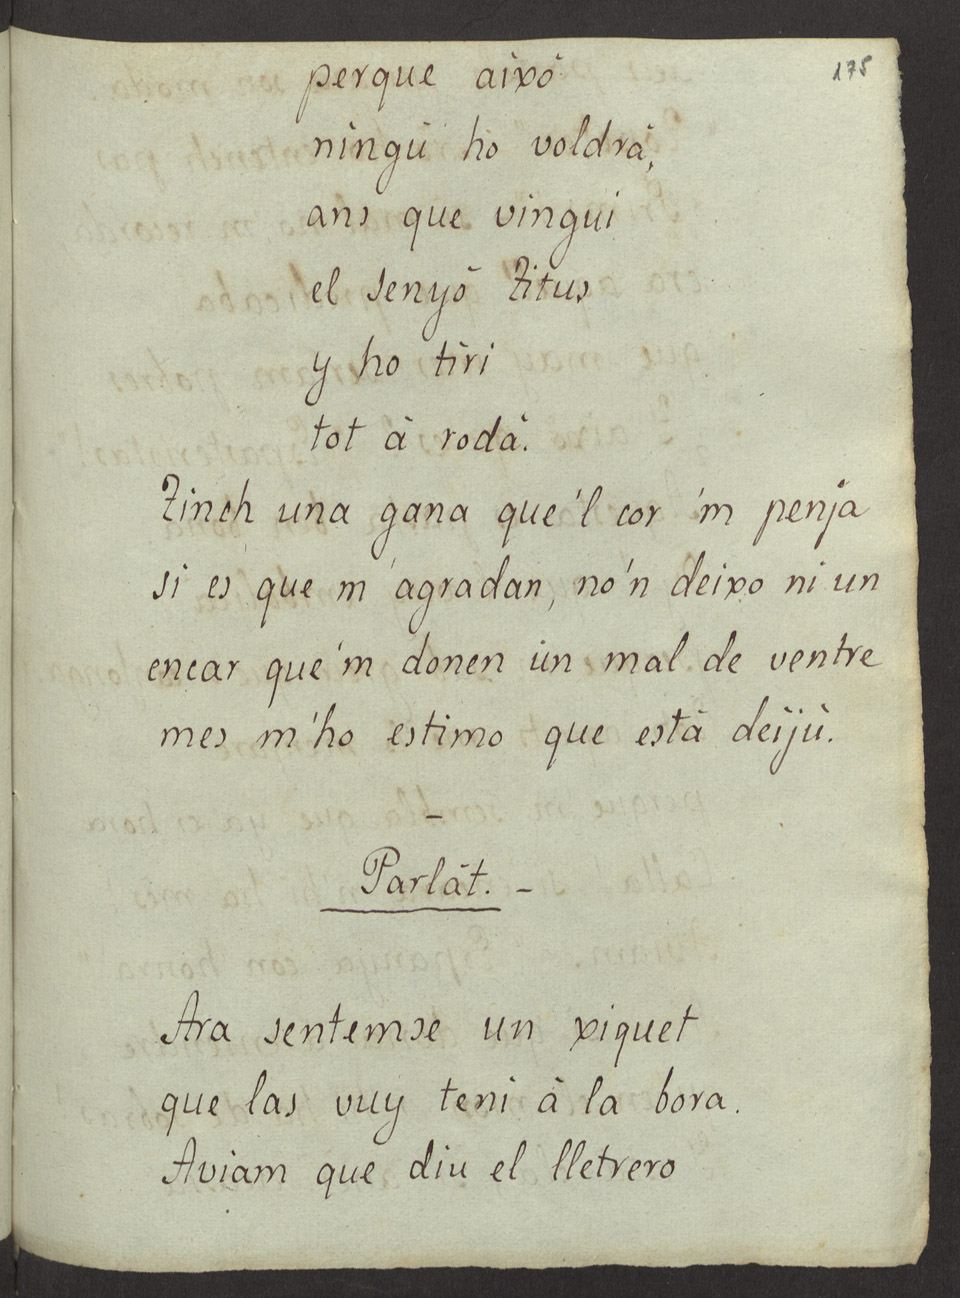 175
perque aixó
ningú ho voldrá,
ans que vingui
el senyó Titus
y ho tiri
tot á rodá.
Tinch una gana que'l cor 'm penja
si es que m'agradan, no'n deixo ni un
encar que'm donen un mal de ventre
mes m'ho estimo que está deijú.
–
Parlát. –
Ara sentemse un xiquet
que las vuy teni á la bora.
Aviam que diu el lletrero